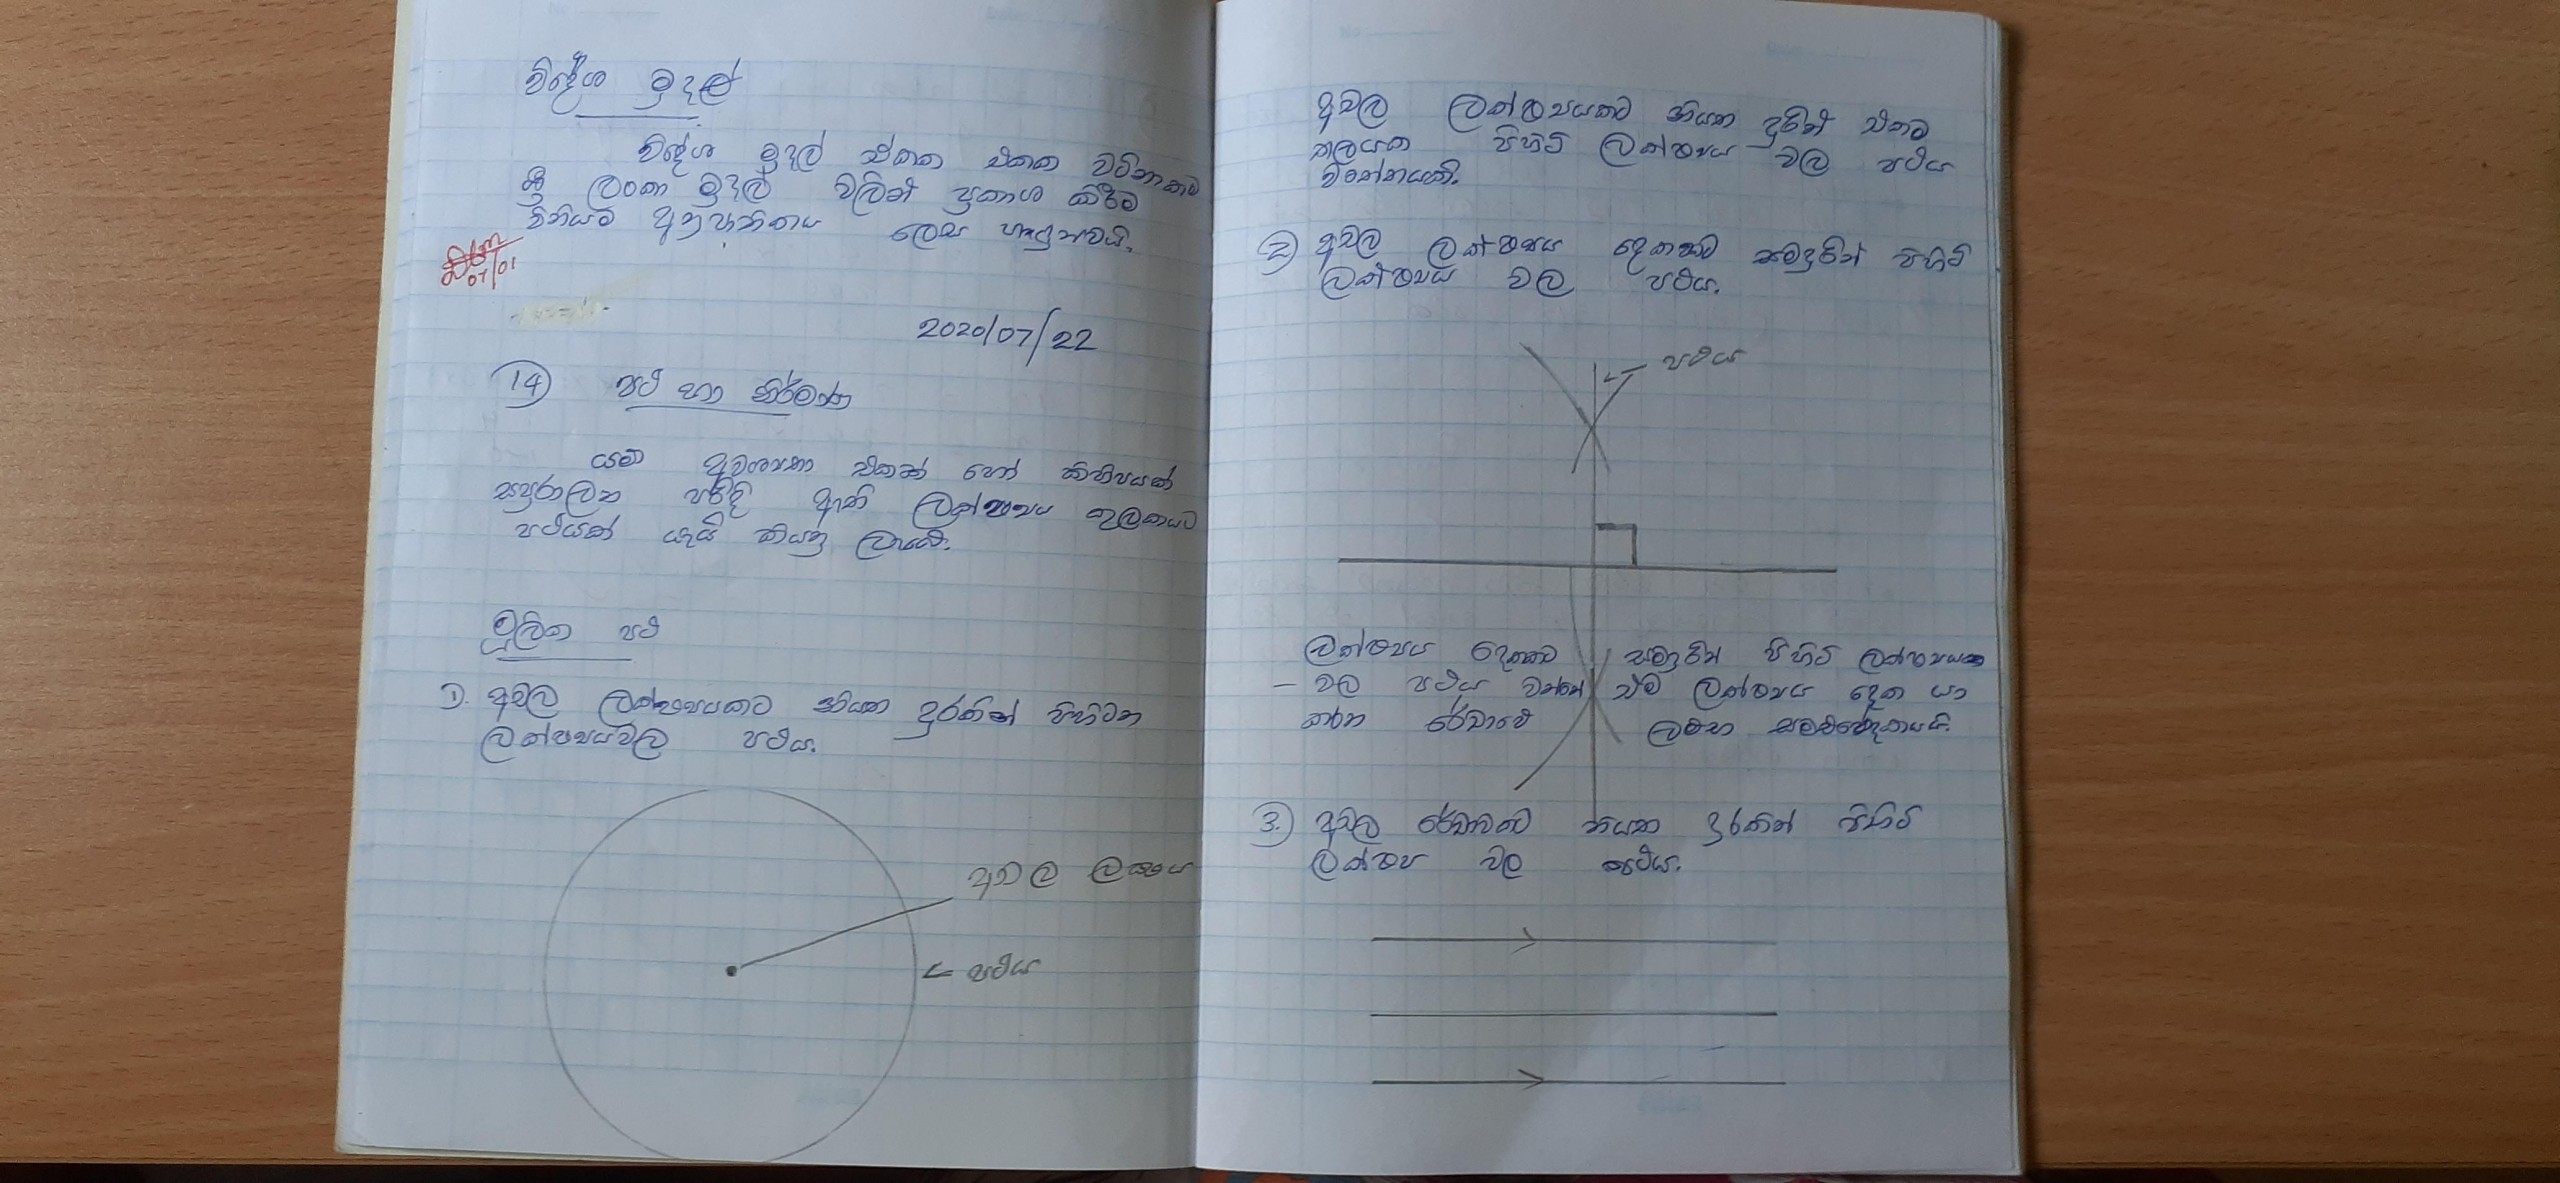 විදේශ මුදල්
විදේශ මුදල් ඒකක එකක වටිනාකම
ශ්‍රී ලංකා මුදල් වලින් ප්‍රකාශ කිරීම
විනියම අනුපාතිකය ලෙස හඳුන්වයි.
07/01
2020/07/22
14 පථ හා නිර්මාණ
යම් අවශ්‍යතා එකක් හෝ කිහිපයක්
සපුරාලන පරිදි ඇති ලක්ෂ්‍යය කුලකයට
පථයක් යැයි කියනු ලැබේ.
මූලික පථ
1. අචල ලක්ෂ්‍යයකට නියත දුරකින් පිහිටන
ලක්ෂ්‍යයවල පථය.
අචල ලක්ෂය
පථය
අචල ලක්ෂ්‍යයකට නියත දුරින් එකම
තලයක පිහිටි ලක්ෂ්‍යය වල පථය
වෘත්තයකි.
2 අචල ලක්ෂ්‍යය දෙකකට සමදුරින් පිහිටි
ලක්ෂ්‍යය වල පථය.
පථය
ලක්ෂ්‍යය දෙකකට සමදුරින් පිහිටි ලක්ෂ්‍යයක
- වල පථය වන්නේ එම ලක්ෂ්‍යය දෙක යා
කරන රේඛාවේ ලම්භ සමච්ඡේදකයයි.
3. අචල රේඛාවකට නියත දුරකින් පිහිටි
ලක්ෂ්‍ය වල පථය.